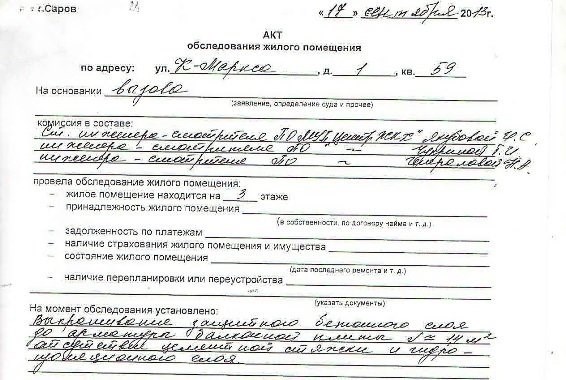 г.Саров «17» сентября 2013г.
АКТ
обследования жилого помещения
по адресу: ул. К-Маркса, д. 1, кв. 59
На основании вызова
(заявление, определение суда и прочее)
комиссия в составе:
Ст. инженера-смотрителя ПО МУП "Центр ЖКХ"
инженера-смотрителя ПО —"—
инженера-смотрителя ПО ~
провела обследование жилого помещения:
– жилое помещение находится на 3 этаже
– принадлежность жилого помещения
(в собственности, по договору найма и т. д.)
– задолженность по платежам
– наличие страхования жилого помещения и имущества
– состояние жилого помещения
(дата последнего ремонта и т. д.)
– наличие перепланировки или переустройства
(указать документы)
На момент обследования установлено:
Выкрашивание защитного бетонного слоя
до арматуры балконной плиты S ≈ 14 м²
отсутствие цементной стяжки и гидро-
изоляционного слоя.